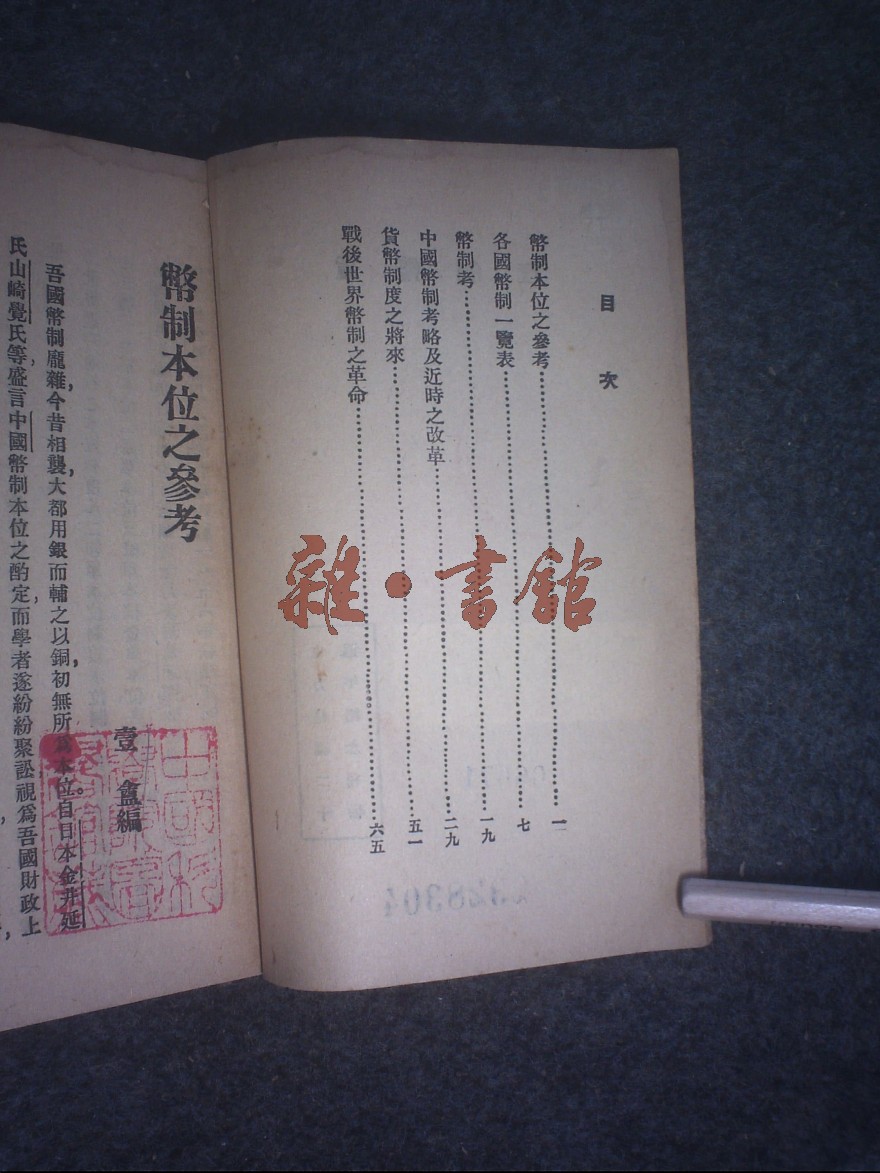 目次
幣制本位之參考………一
各國幣制一覽表………七
幣制考………一九
中國幣制考略及近時之改革………二九
貨幣制度之將來………五一
戰後世界幣制之革命………六五
雜·書館
幣制本位之參考
壹盦編
吾國幣制龐雜，今昔相襲，大都用銀而輔之以銅，初無所爲本位。自日本金井延
氏山崎覺氏等，盛言中國幣制本位之酌定，而學者遂紛紛聚訟，視爲吾國財政上